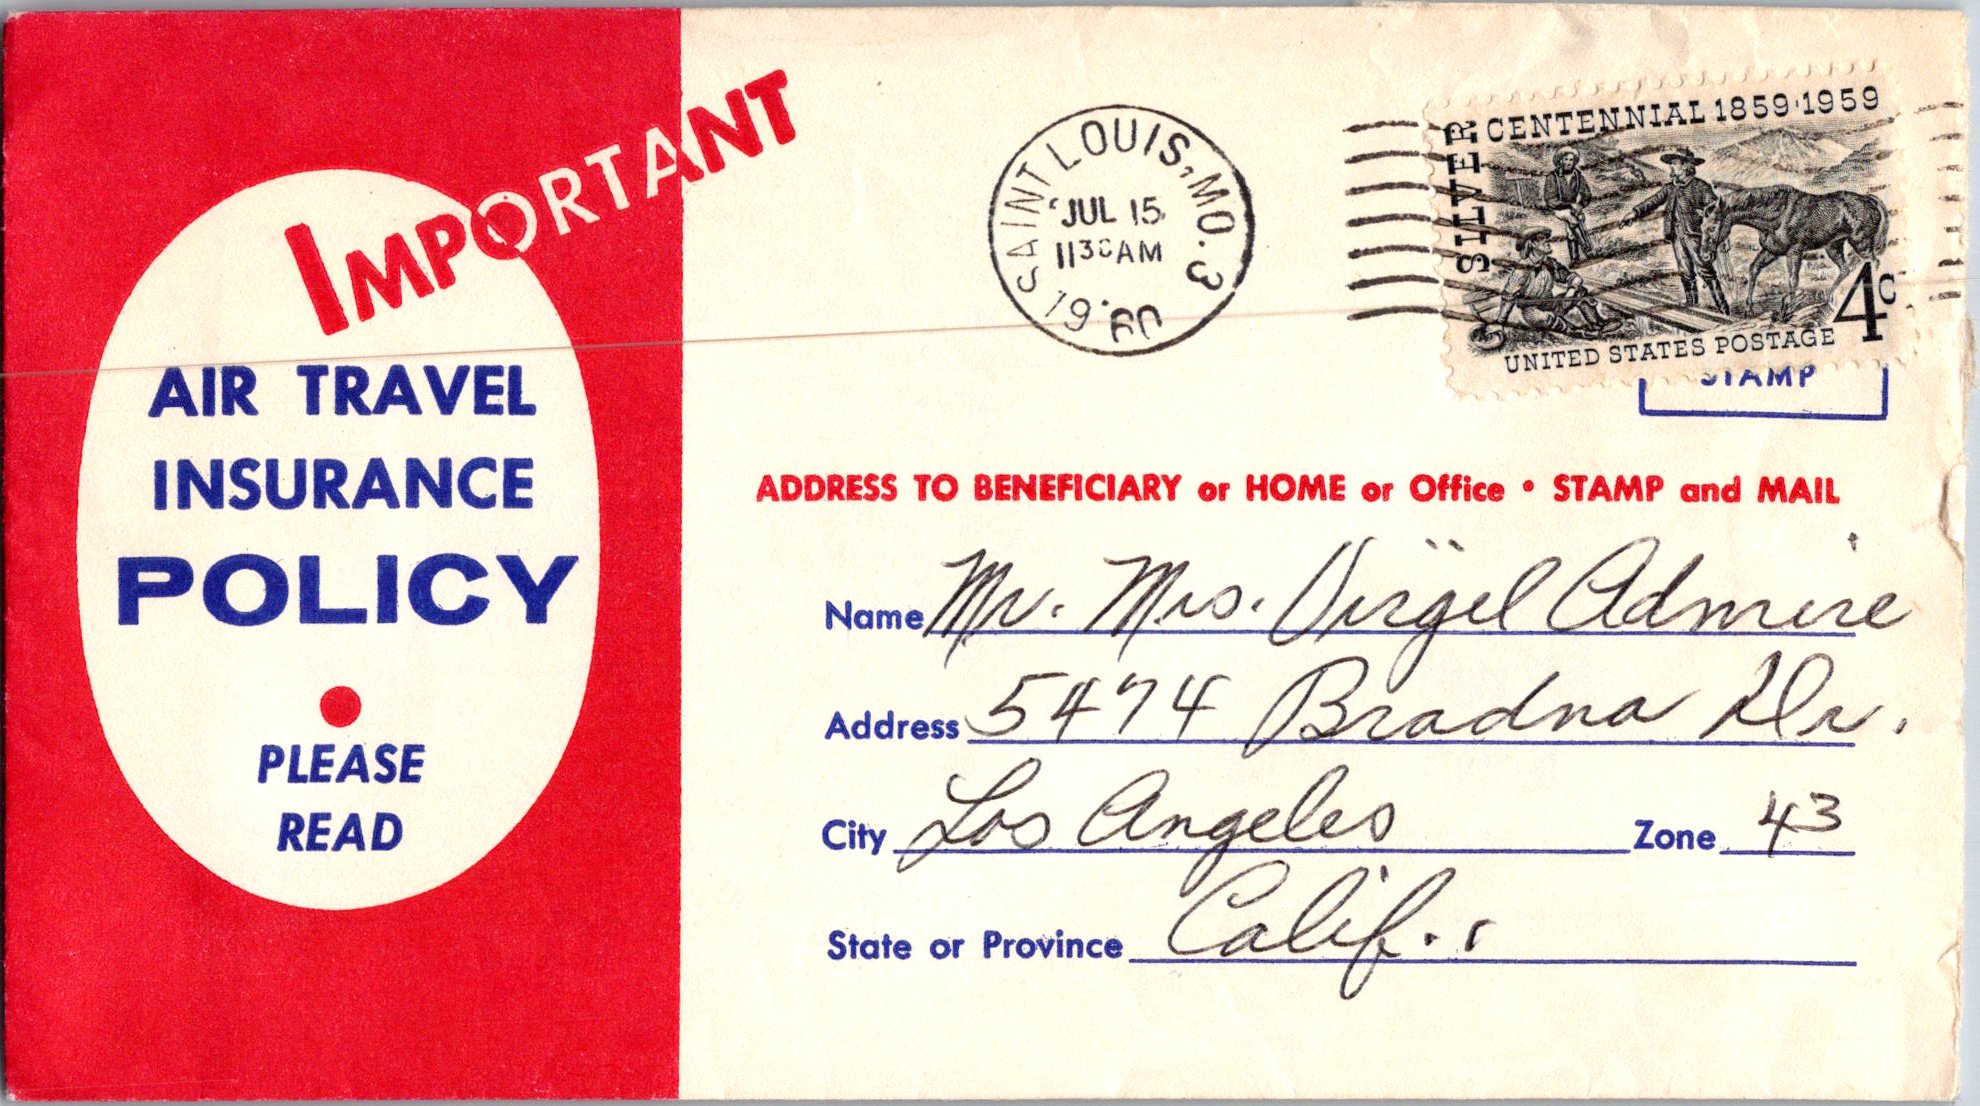 IMPORTANT
AIR TRAVEL
INSURANCE
POLICY
PLEASE
READ
SAINT LOUIS, MO. 3
JUL 15
1130AM
1960
SILVER
CENTENNIAL 1859·1959
4c
UNITED STATES POSTAGE
STAMP
ADDRESS TO BENEFICIARY or HOME or Office • STAMP and MAIL
Name Mr. Mrs. Virgel Admire
Address 5474 Bradna Dr.
City Los Angeles Zone 43
State or Province Calif.